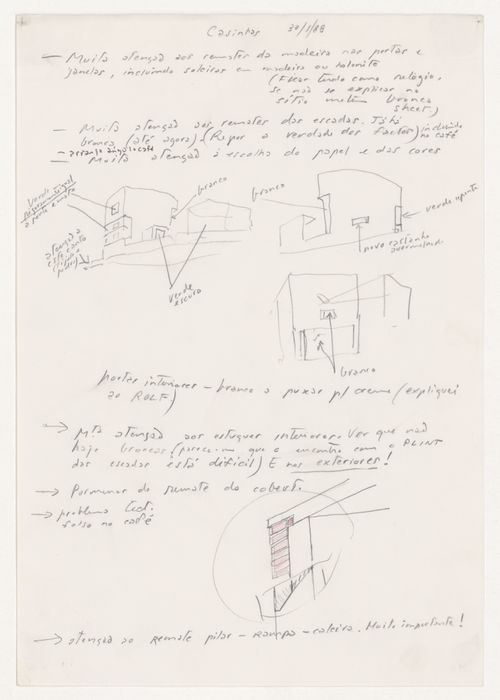 Casinhas 30/1/88
— Muita atenção aos remates da madeira nas portas e
janelas, incluindo soleiras em madeira ou
(Ficar tudo como relógio,
se não se explicar no
sítio metem branco
sheet.)
— Muita atenção aos remates das escadas. Já há
bronca (até agora). (Repor a verdade dos factos) incluindo
no café
— arranjo
— Muita atenção à escolha do papel e das cores
verde
branco
branco
verde
atenção a
este canto
verde
escuro
novo castanho
avermelhado
branco
portas interiores — branco a puxar p/ creme (expliquei
ao ROLF)
→ Mta atenção aos estuques interiores. Ver que não
haja broncas (parece-me que o encontro com o PLINT
das escadas está difícil) E nos exteriores!
→ Pormenor do remate da cobert.
→ problema tect.
falso no café
→ atenção ao remate pilar – rampa – caleira. Muito importante!